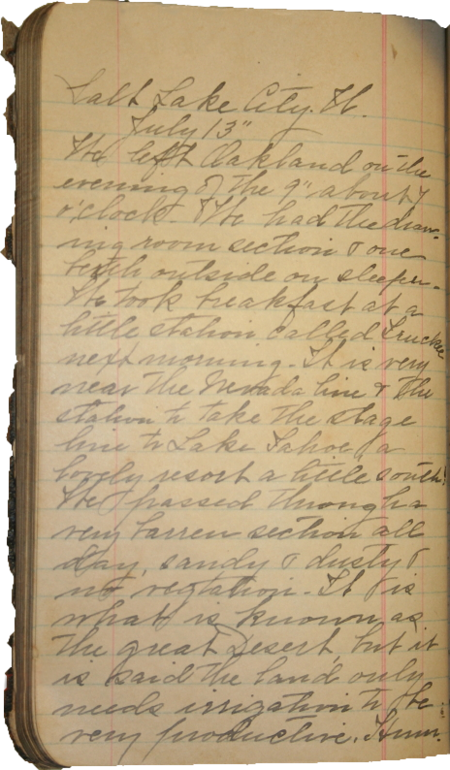 Salt Lake City. Ut.
July 13"
We left Oakland on the
evening of the 9" about 7
o'clock. We had the draw-
ing room section & one
berth outside on sleeper.
We took breakfast at a
little station called Truckee
next morning. It is very
near the Nevada line & the
station to take the stage
line to Lake Tahoe, a
lovely resort a little south.
We passed through a
very barren section all
day, sandy & dusty &
no vegtation. It is
what is known as
the great Desert, but it
is said the land only
needs irrigation to be
very productive. Hum-